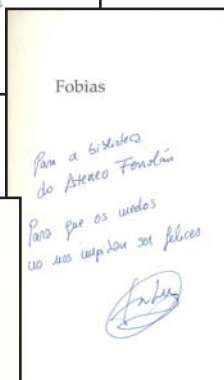 Fobias
Para a biblioteca
do Ateneo Ferrolán
Para que os medos
no nos impidan ser felices